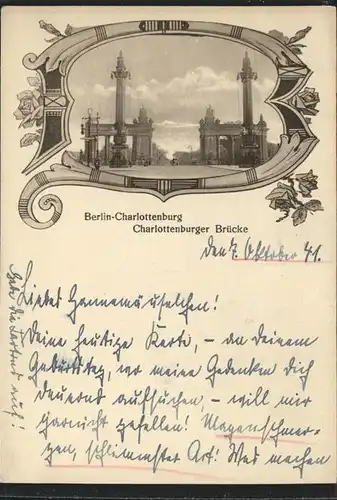 Berlin-Charlottenburg
Charlottenburger Brücke
den 7. Oktober 41.
Liebes Hannemäuselchen!
Deine heutige Karte, – an deinem
Geburtstag, wo meine Gedanken dich
dauernd aufsuchen, – will mir
garnicht gefallen! Magenschmer-
zen, schlimmster Art! Was machen
Hebe die Karten auf!